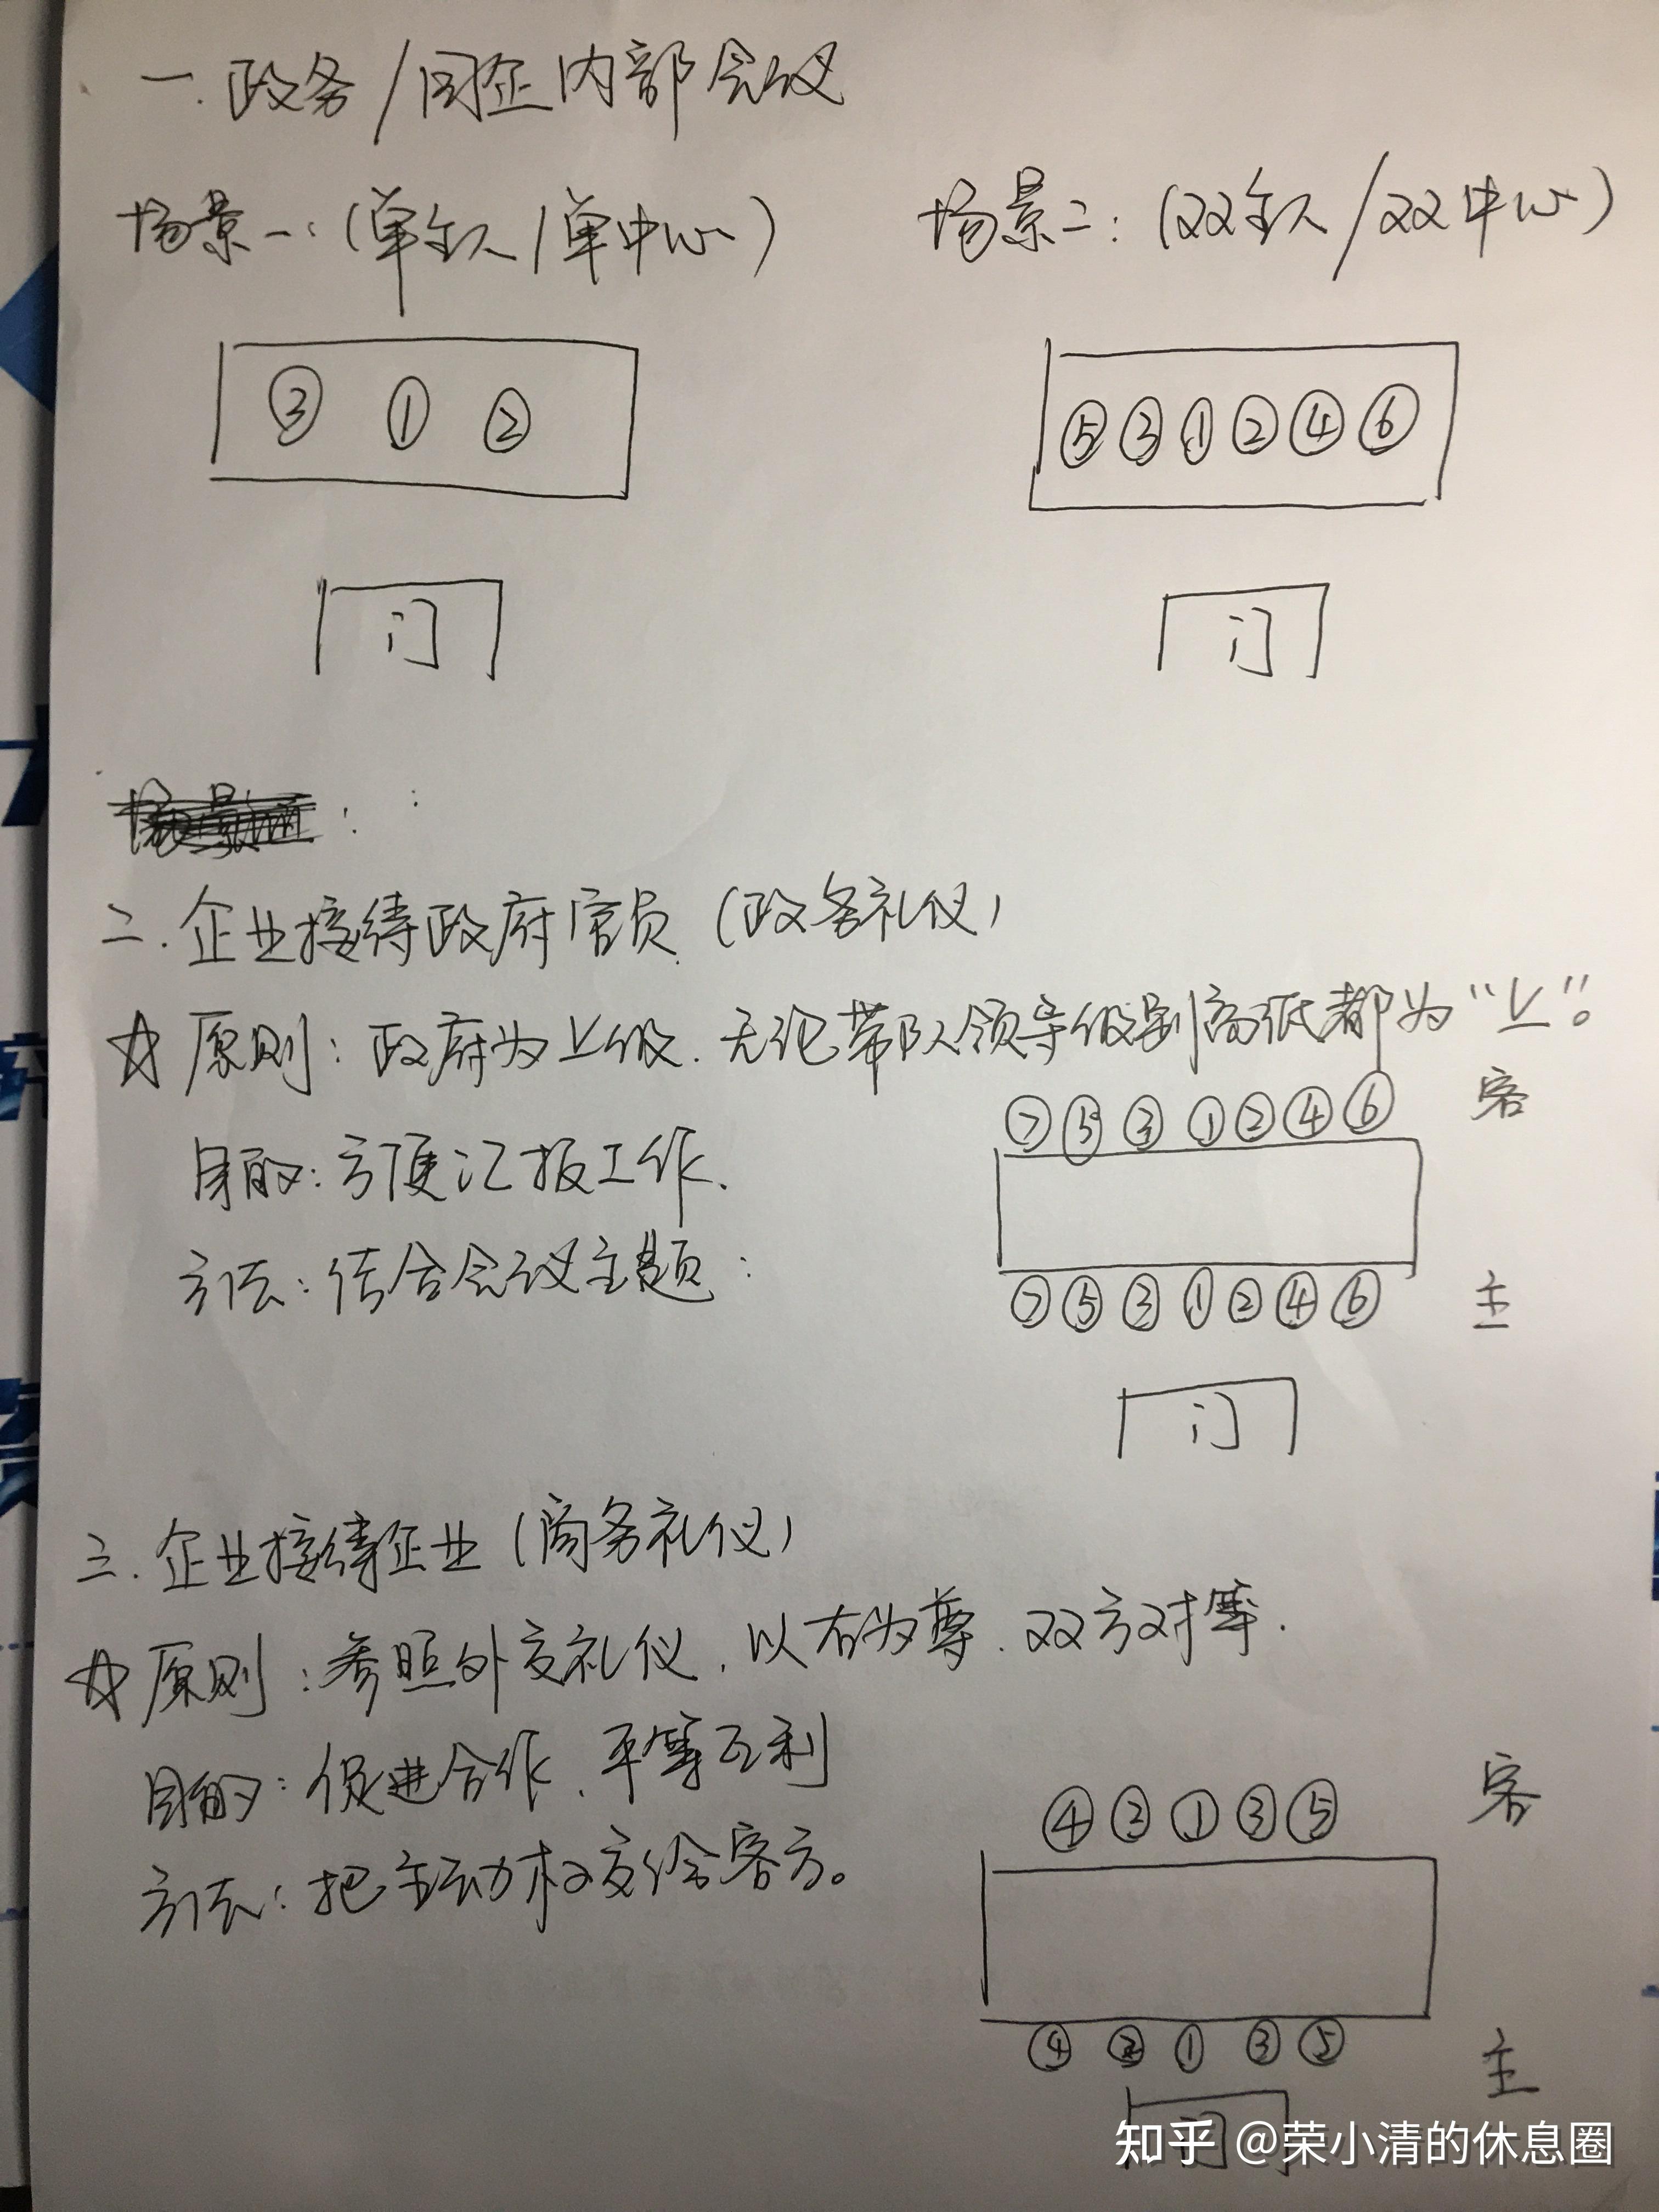 一.政务/国企内部会议
场景一:(单主人/单中心)
场景二:(双主人/双中心)
③ ① ②
⑤ ③ ① ② ④ ⑥
门
门
二.企业接待政府官员(政务礼仪)
☆原则:政府为上级.无论带队领导级别高低都为“上”。
⑦ ⑤ ③ ① ② ④ ⑥ 客
目的:方便汇报工作.
方法:结合会议主题:
⑦ ⑤ ③ ① ② ④ ⑥ 主
门
三.企业接待企业(商务礼仪)
☆原则:参照外交礼仪,以右为尊.双方对等.
目的:促进合作、平等互利
④ ② ① ③ ⑤ 客
方法:把主动权交给客方。
④ ② ① ③ ⑤ 主
门
知乎 @荣小清的休息圈